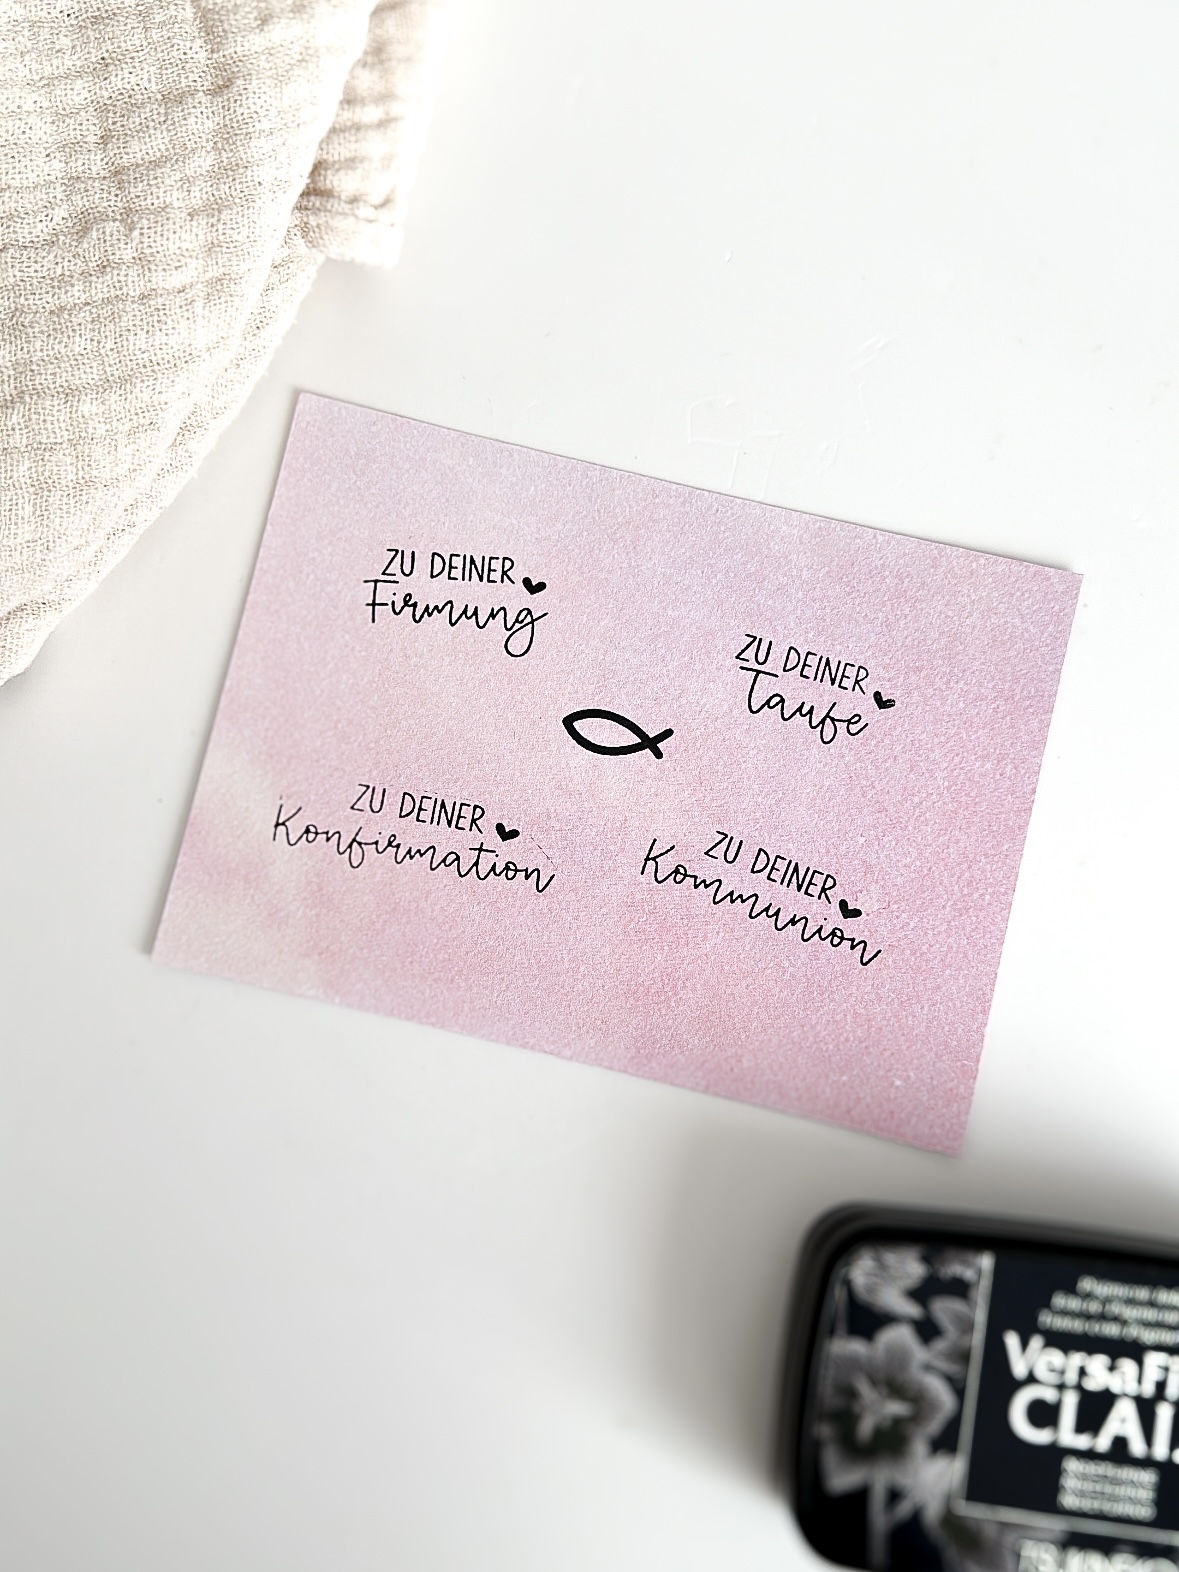 ZU DEINER
Firmung
ZU DEINER
Taufe
ZU DEINER
Konfirmation
ZU DEINER
Kommunion
Pigment
VersaFi
CLAI